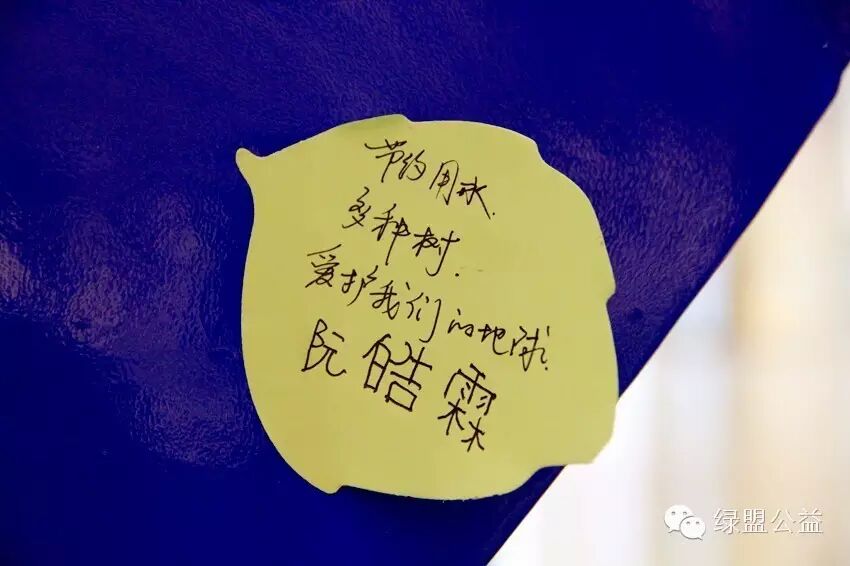 节约用水.
多种树.
爱护我们的地球.
阮皓霖
绿盟公益